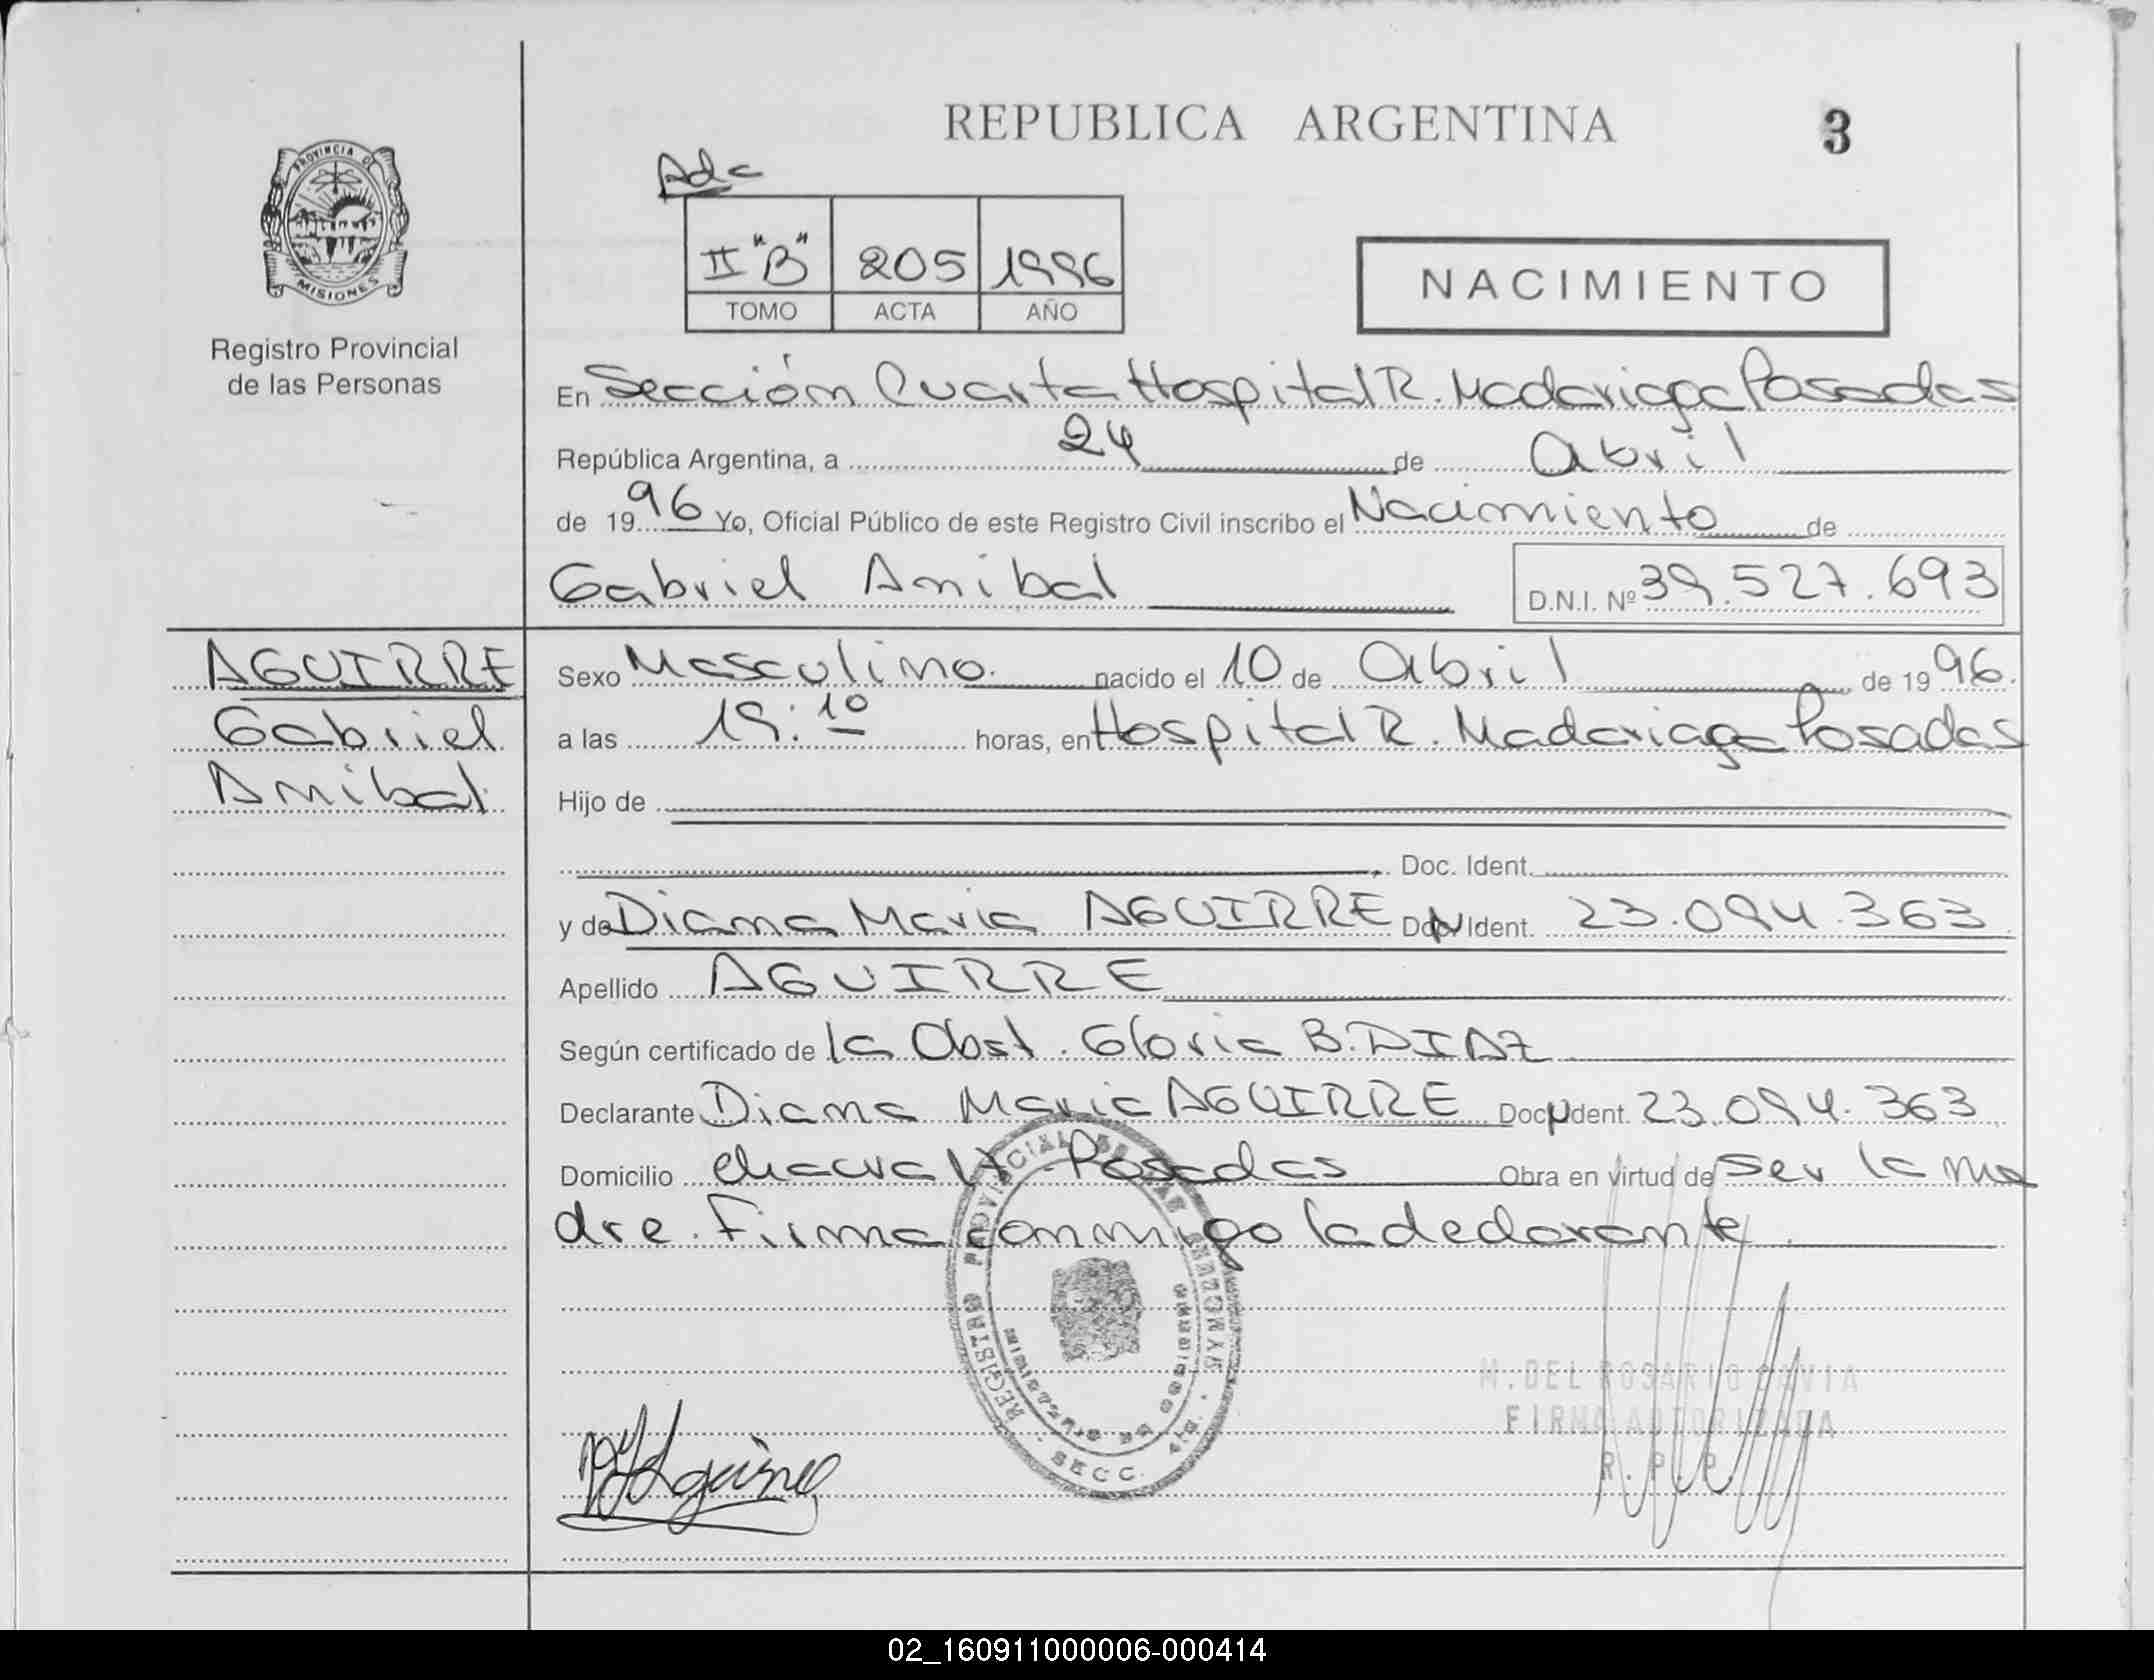 REPUBLICA ARGENTINA
3
PROVINCIA DE
MISIONES
Registro Provincial
de las Personas
Adc
II "B" 205 1996
TOMO ACTA AÑO
NACIMIENTO
En Sección Cuarta Hospital R. Madariaga Posadas
República Argentina, a 24 de Abril
de 1996 Yo, Oficial Público de este Registro Civil inscribo el Nacimiento de
Gabriel Anibal
D.N.I. Nº 39.527.693
AGUIRRE
Gabriel
Anibal
Sexo Masculino. nacido el 10 de Abril de 1996.
a las 19:10 horas, en Hospital R. Madariaga Posadas
Hijo de
Doc. Ident.
y de Diana Maria AGUIRRE Doc. Ident. 23.094.363
Apellido AGUIRRE
Según certificado de la Obst. Gloria B. DIAZ
Declarante Diana Maria AGUIRRE Doc. Ident. 23.094.363
Domicilio Chacra Posadas Obra en virtud de ser la ma
dre. Firma conmigo la declarante.
REGISTRO PROVINCIAL DE LAS PERSONAS
SECC.
M. DEL ROSARIO
FIRMA AUTORIZADA
R. P. P.
02_160911000006-000414